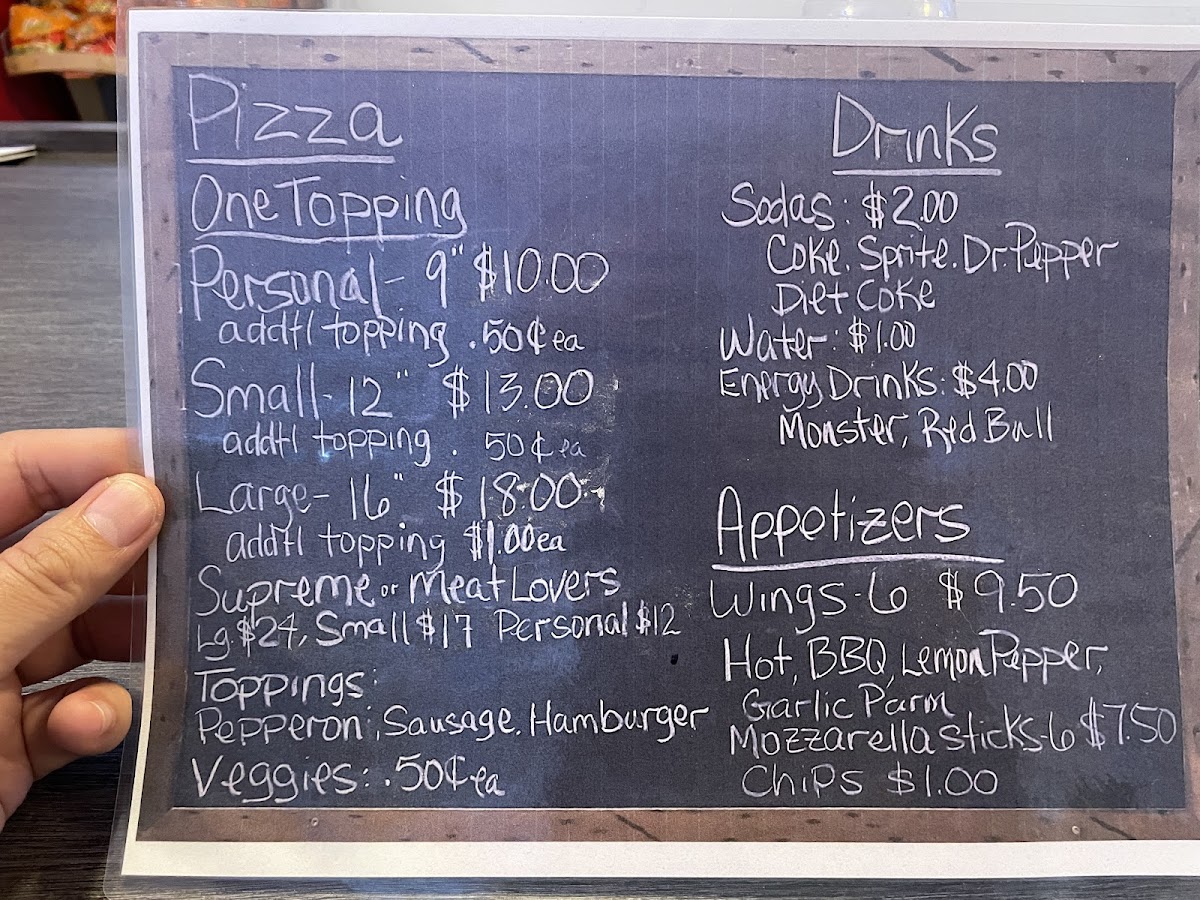 Pizza
One Topping
Personal - 9" $10.00
addtl topping .50¢ ea
Small - 12" $13.00
addtl topping . 50¢ ea
Large - 16" $18.00
addtl topping $1.00 ea
Supreme or Meat Lovers
Lg. $24, Small $17 Personal $12
Toppings:
Pepperoni, Sausage, Hamburger
Veggies: .50¢ ea
Drinks
Sodas: $2.00
Coke. Sprite. Dr. Pepper
Diet Coke
Water: $1.00
Energy Drinks: $4.00
Monster, Red Bull
Appetizers
Wings - 6 $9.50
Hot, BBQ, Lemon Pepper,
Garlic Parm
Mozzarella sticks - 6 $7.50
Chips $1.00